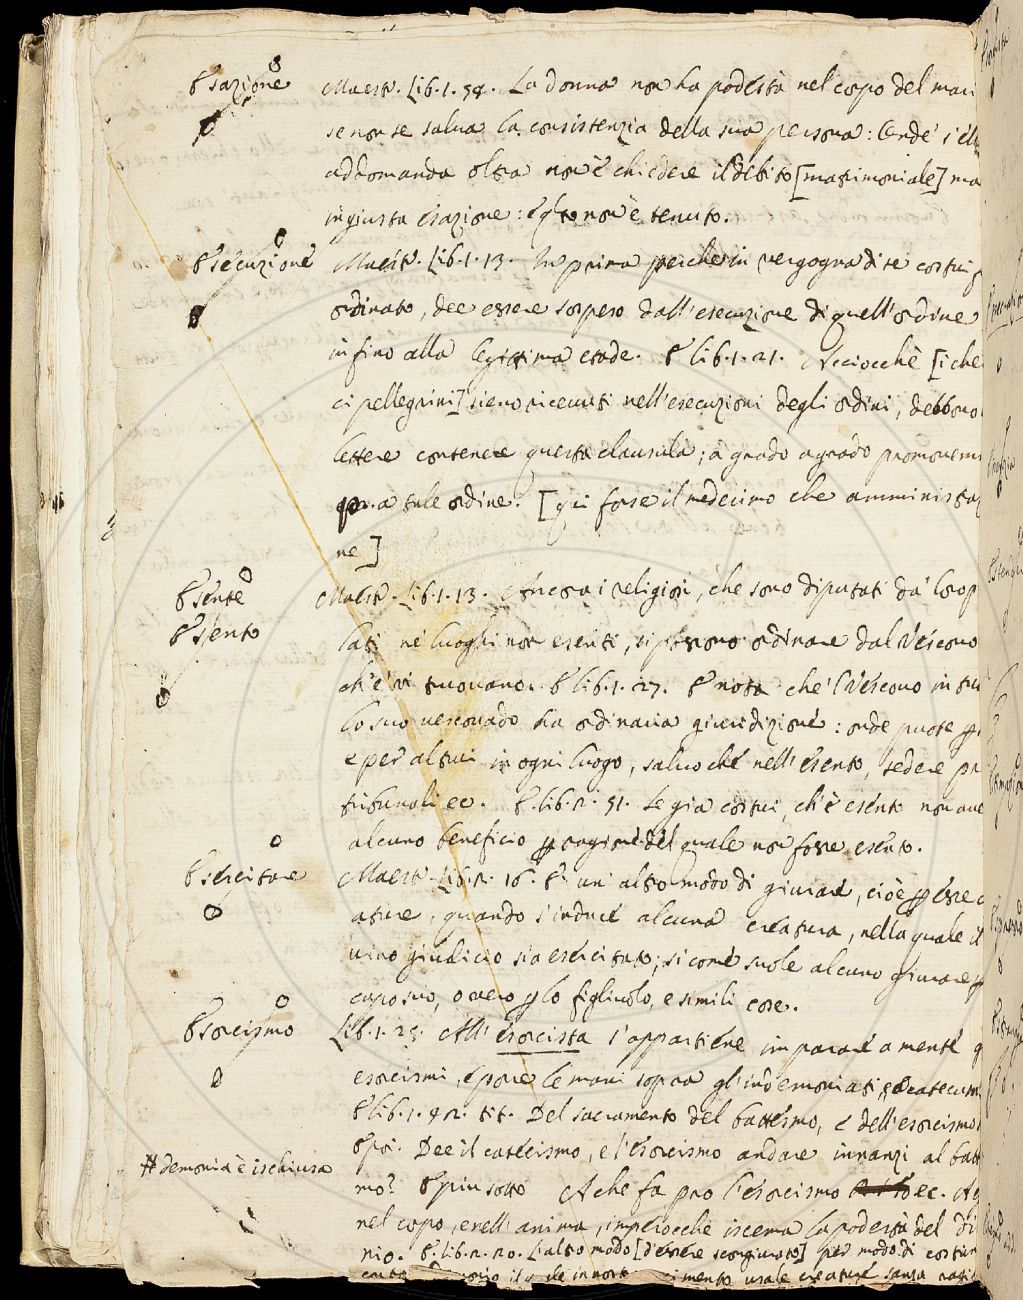 Esazione
Maestr. Lib. 1. 58. La donna non ha podestà nel corpo del mari
se non se salva la consistenzia della sua persona: Onde s'ella
addomanda oltra non è chiedere il debito [matrimoniale] ma
ingiusta esazione: e qto non è tenuto.
Esecuzione
Maestr. Lib. 1. 13. In prima perchè in vergogna di se costui
ordinato, dee essere sospeso dall'esecuzione di quell'ordine
infino alla legittima etade. E lib. 1. 21. Acciocchè [i che
ci pellegrini] sieno ricevuti nell'esecuzioni degli ordini, debbono
lettere contenere questa clausula; a grado a grado promovemo
a tale ordine. [qui forse il medesimo che amministraz
ne]
Esente
Esento
Maestr. Lib. 1. 13. Ancora i religiosi, che sono diputati da' loro p
lati ne' luoghi non esenti, si possono ordinare dal Vescovo
ch'e' vi truovano. E lib. 1. 27. E nota che'l Vescovo in tu
lo suo vescovado ha ordinaria giuridizione: onde puote p
e per altrui in ogni luogo, salvo che nell'esento, sedere pr
tribunali ec. E lib. 2. 51. Se già costui, ch'è esento non ave
alcuno beneficio p ragione del quale non fosse esento.
Esercitare
Maestr. Lib. 2. 16. E un altro modo di giurare, cioè p esec
ature, quando s'induce alcuna creatura, nella quale il
vino giudicio sia esercitato; sì come suole alcuno giurare p
capo suo, o vero p lo figliuolo, e simili cose.
Esorcismo
Lib. 1. 25. All'esorcista s'appartiene imparare a mente g
esorcismi, e pore le mani sopra gl'indemoniati, e catecum
E lib. 1. 42. tit. Del sacramento del battesmo, e dell'esorcismo
E poi. Dee il catecismo, e l'esorcismo andare innanzi al batt
# demonia è ischiusa
mo? E più sotto A che fa pro l'esorcismo ec. A
nel corpo, e nell'anima, imperocchè iscema la podestà del di
nio. E lib. 2. 20. L'altro modo [d'essere scongiurato] per modo di costrin
cimento usale creature sanza ragi